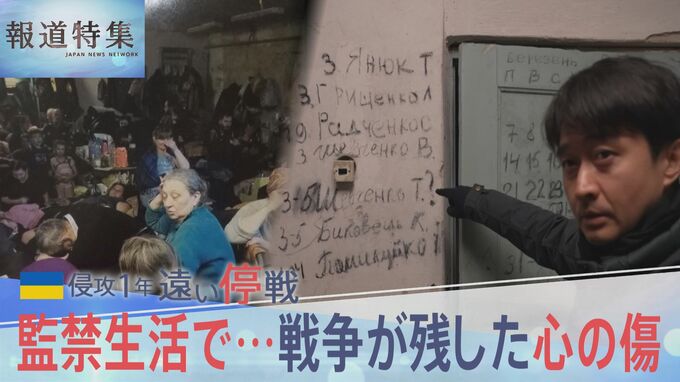 報道特集
JAPAN NEWS NETWORK
3. Янюк Т
3. Грищенко Л
Радченко
3
В.
3-5 Шевченко Т.?
3-5 Биковець К.
БЕРЕЗЕНЬ
П В С
7 8
14 15 16
21 22 23
侵攻1年 遠い停戦
監禁生活で…戦争が残した心の傷